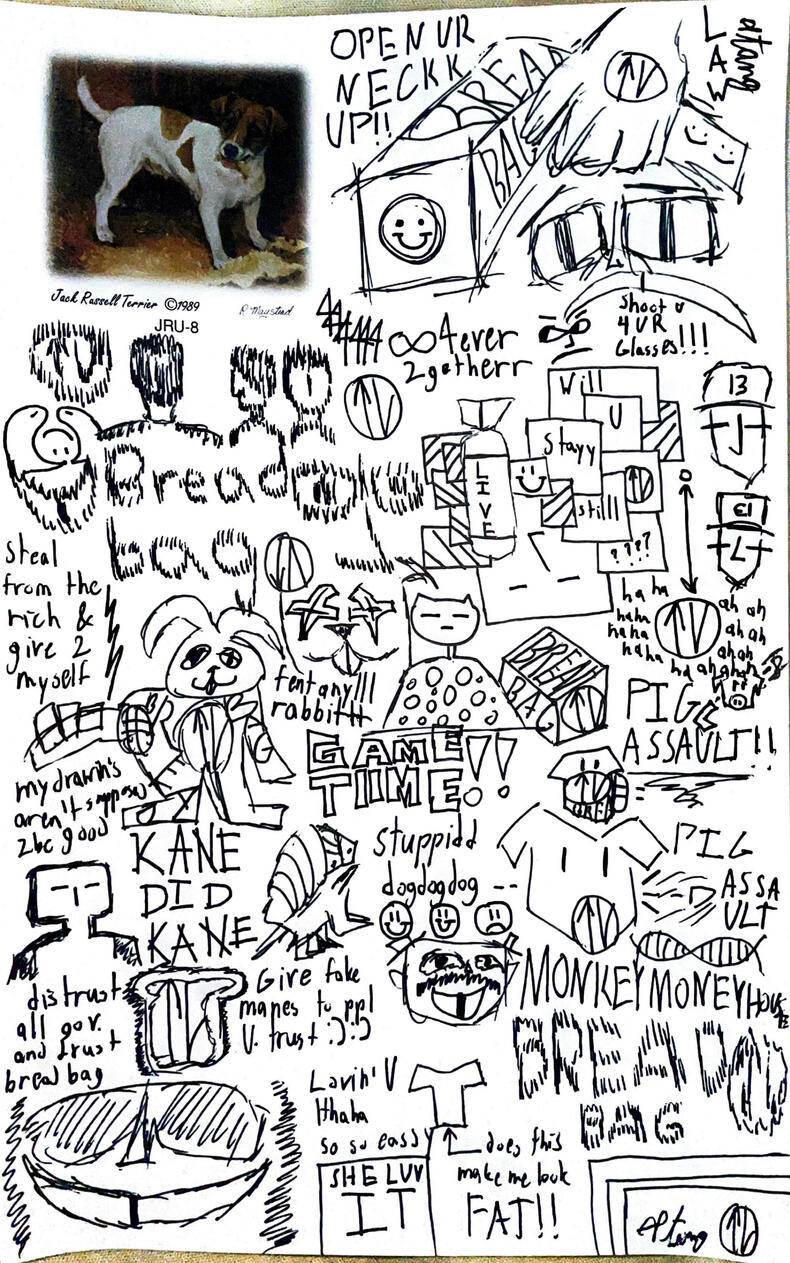 OPEN UR
NECKK
UP!!
BREAD
BAG
LAW
Jack Russell Terrier ©1989
R. Maystead
JRU-8
∞4ever
2getherr
Shoot u
4 UR
Glasses!!!
Will
U
Stayy
still
????
LIVE
13
13
Bread
bag
steal
from the
rich &
give 2
myself
fentanyl!!
rabbit!!
BREAD
BAG
ha ha
haha
haha
haha
ah ah
ah ah
ahah
PIG
ASSAULT!!
GAME
TIIME!!
my drawin's
aren't suppose
2 be good
KANE
DID
KANE
stuppidd
dogdogdog --
PIG
ASSA
ULT
distrust
all gov.
and trust
bread bag
Give fake
mapes to ppl
U. trust :):)
MONKEY MONEY HOUSE
BREAD
BAG
Lovin' U
Hhaha
so so easyy
SHE LUV
IT
does this
make me look
FAT!!